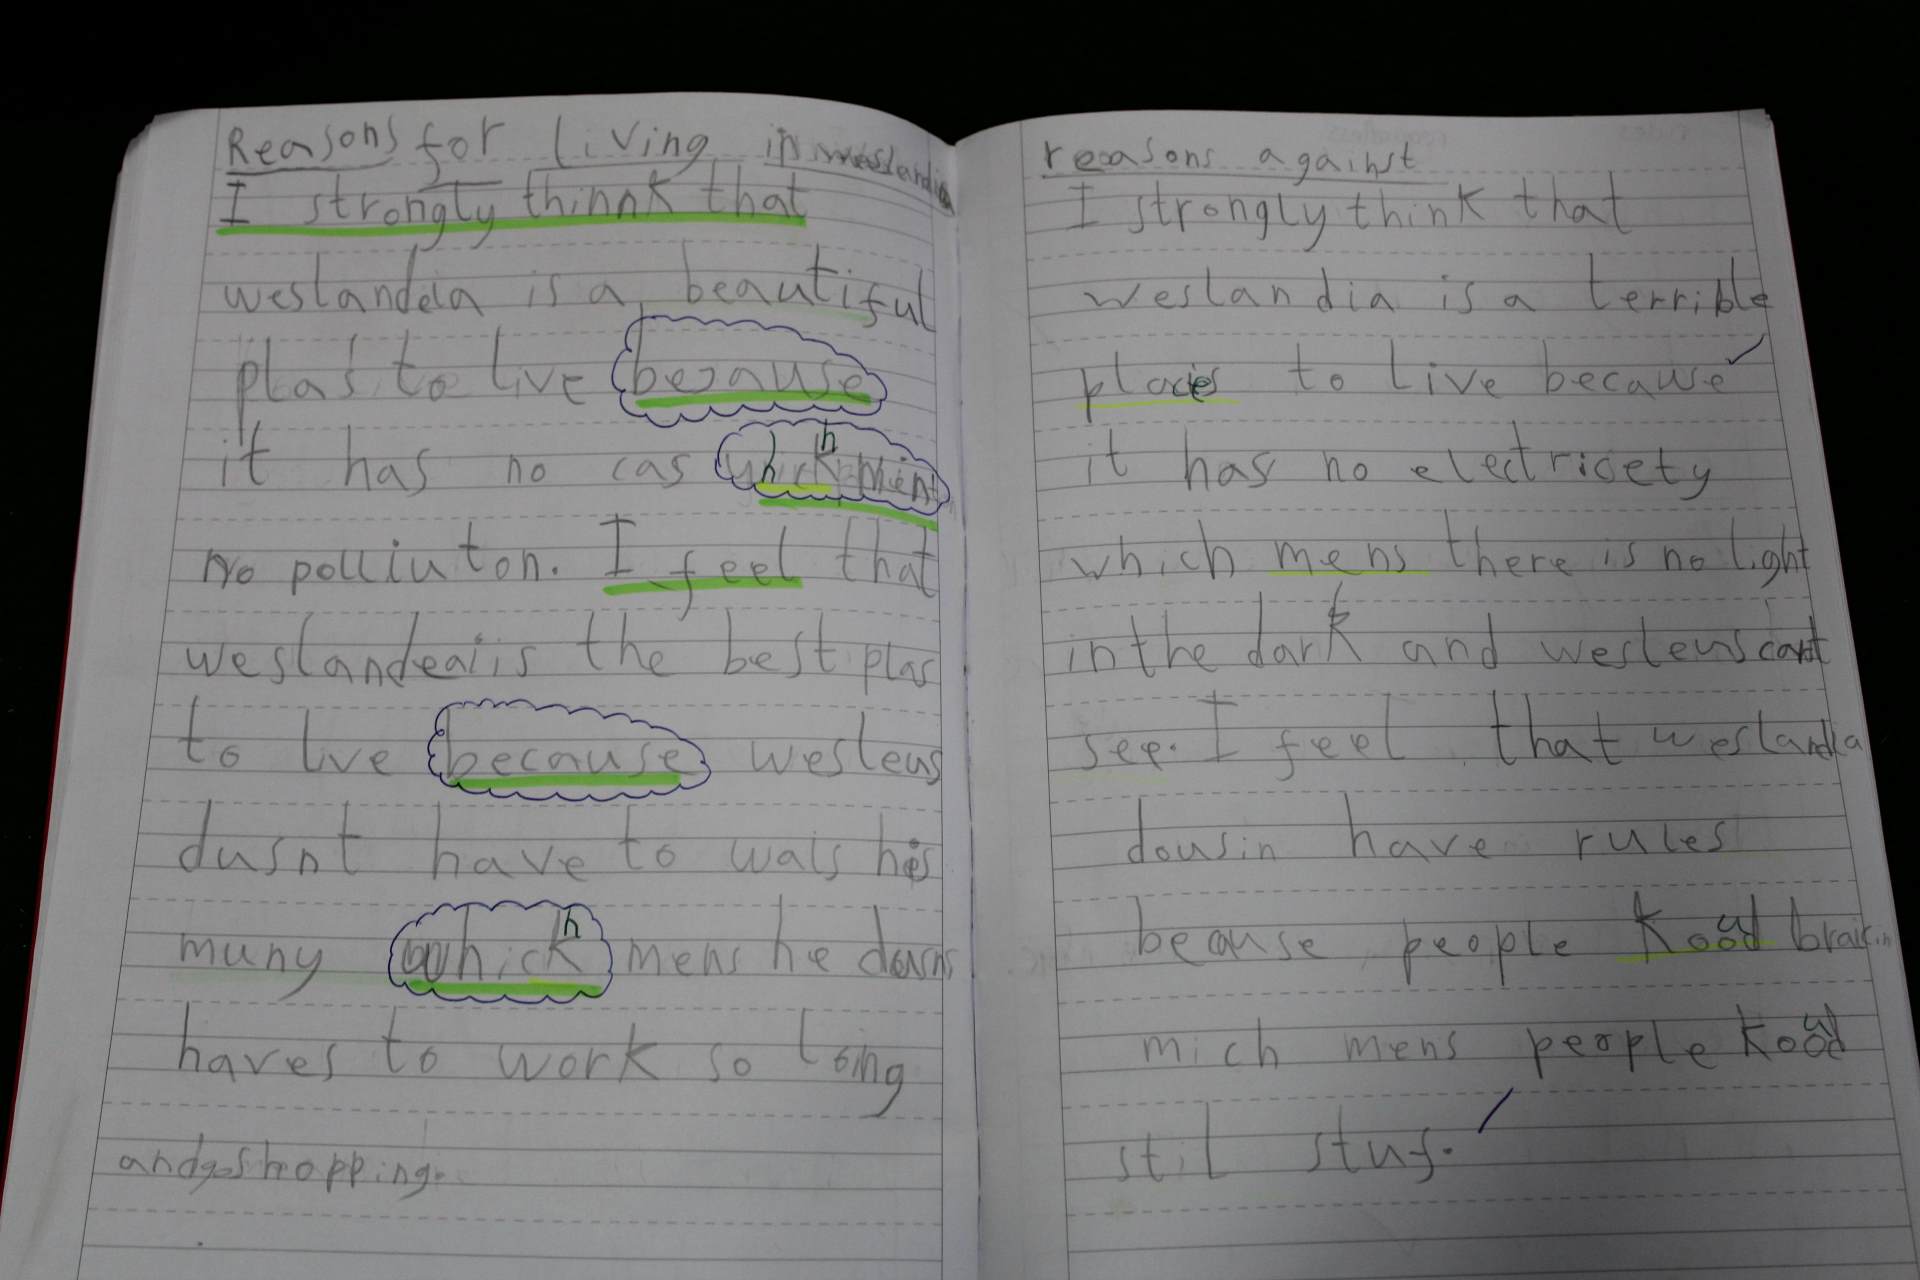 Reasons for living in weslandia
I strongly thinnk that
weslandeia is a beautiful
plas to live because
it has no cas whickh ment
no polliuton. I feel that
weslandeai is the best plas
to live because wesleus
dusnt have to wais his
muny whickh mens he dousns
haves to work so loing
and go shopping.
reasons against
I strongly think that
weslandia is a terrible
places to live because
it has no electricety
which mens there is no light
in the dark and wesleus cant
see. I feel that weslandia
dousin have rules
because people kould brake in
mich mens people kould
stil stuf.